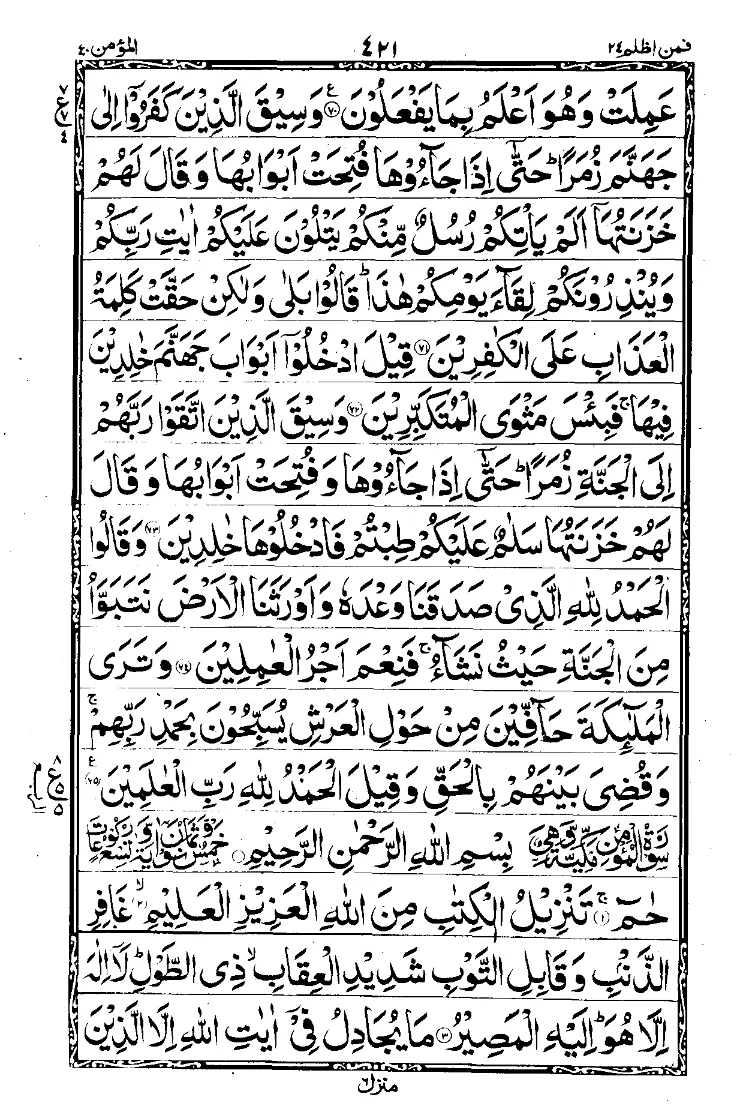 فمن اظلم ۲۴ ۴۲۱ المؤمن ۴۰
عَمِلَتْ وَهُوَ اَعْلَمُ بِمَا يَفْعَلُوْنَ ﴿۷۰﴾ ع وَسِيْقَ الَّذِيْنَ كَفَرُوْٓا اِلٰى
جَهَنَّمَ زُمَرًا ؕ حَتّٰٓى اِذَا جَآءُوْهَا فُتِحَتْ اَبْوَابُهَا وَقَالَ لَهُمْ
خَزَنَتُهَآ اَلَمْ يَاْتِكُمْ رُسُلٌ مِّنْكُمْ يَتْلُوْنَ عَلَيْكُمْ اٰيٰتِ رَبِّكُمْ
وَيُنْذِرُوْنَكُمْ لِقَآءَ يَوْمِكُمْ هٰذَا ؕ قَالُوْا بَلٰى وَلٰكِنْ حَقَّتْ كَلِمَةُ
الْعَذَابِ عَلَى الْكٰفِرِيْنَ ﴿۷۱﴾ قِيْلَ ادْخُلُوْٓا اَبْوَابَ جَهَنَّمَ خٰلِدِيْنَ
فِيْهَا ۚ فَبِئْسَ مَثْوَى الْمُتَكَبِّرِيْنَ ﴿۷۲﴾ وَسِيْقَ الَّذِيْنَ اتَّقَوْا رَبَّهُمْ
اِلَى الْجَنَّةِ زُمَرًا ؕ حَتّٰٓى اِذَا جَآءُوْهَا وَفُتِحَتْ اَبْوَابُهَا وَقَالَ
لَهُمْ خَزَنَتُهَا سَلٰمٌ عَلَيْكُمْ طِبْتُمْ فَادْخُلُوْهَا خٰلِدِيْنَ ﴿۷۳﴾ وَقَالُوا
الْحَمْدُ لِلّٰهِ الَّذِىْ صَدَقَنَا وَعْدَهٗ وَاَوْرَثَنَا الْاَرْضَ نَتَبَوَّاُ
مِنَ الْجَنَّةِ حَيْثُ نَشَآءُ ۚ فَنِعْمَ اَجْرُ الْعٰمِلِيْنَ ﴿۷۴﴾ وَتَرَى
الْمَلٰٓئِكَةَ حَآفِّيْنَ مِنْ حَوْلِ الْعَرْشِ يُسَبِّحُوْنَ بِحَمْدِ رَبِّهِمْ ۚ
وَقُضِىَ بَيْنَهُمْ بِالْحَقِّ وَقِيْلَ الْحَمْدُ لِلّٰهِ رَبِّ الْعٰلَمِيْنَ ﴿۷۵﴾ ع
سُوْرَةُ الْمُؤْمِنِ مَكِّيَّةٌ وَّهِىَ بِسْمِ اللّٰهِ الرَّحْمٰنِ الرَّحِيْمِ خَمْسٌ وَّثَمَانُوْنَ اٰيَةً وَّتِسْعُ رُكُوْعَاتٍ
حٰمٓ ۚ ﴿۱﴾ تَنْزِيْلُ الْكِتٰبِ مِنَ اللّٰهِ الْعَزِيْزِ الْعَلِيْمِ ۙ ﴿۲﴾ غَافِرِ
الذَّنْۢبِ وَقَابِلِ التَّوْبِ شَدِيْدِ الْعِقَابِ ۙ ذِى الطَّوْلِ ؕ لَآ اِلٰهَ
اِلَّا هُوَ ؕ اِلَيْهِ الْمَصِيْرُ ﴿۳﴾ مَا يُجَادِلُ فِىْٓ اٰيٰتِ اللّٰهِ اِلَّا الَّذِيْنَ
منزل ۶